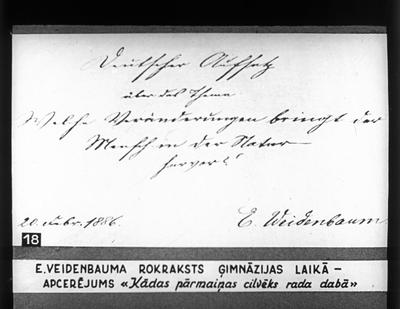 Deutscher Aufsatz
über das Thema
Welche Veränderungen bringt der
Mensch in der Natur
hervor?
20. Febr. 1886. E. Weidenbaum
18
E.VEIDENBAUMA ROKRAKSTS ĢIMNĀZIJAS LAIKĀ –
APCERĒJUMS «Kādas pārmaiņas cilvēks rada dabā»